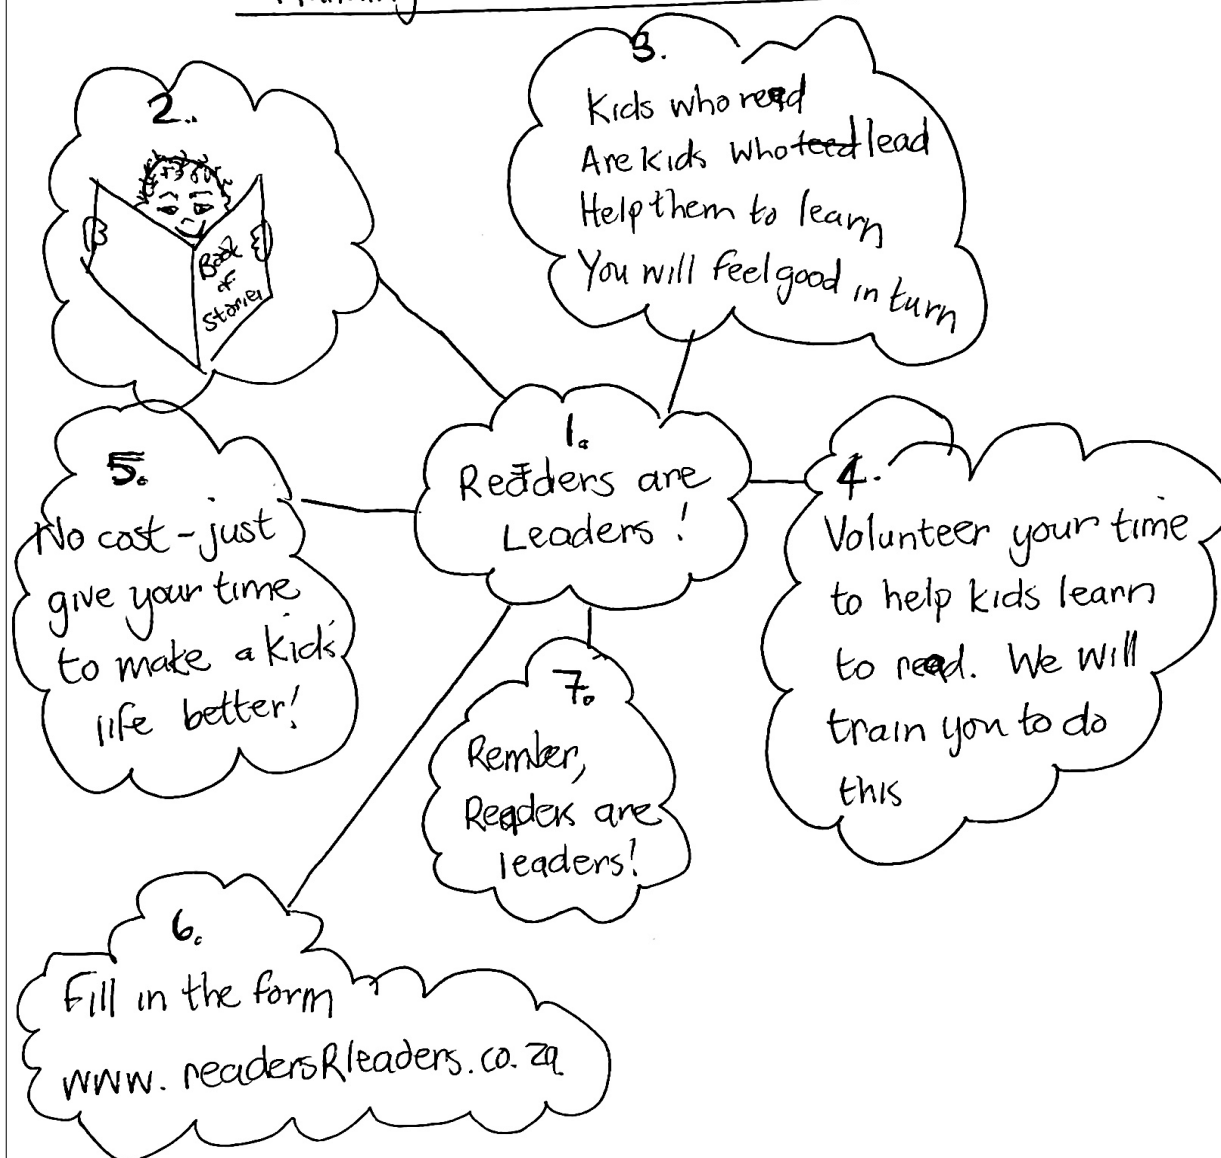 1.
Readers are
Leaders!
2.
Book
of
Stories
3.
Kids who read
Are kids who lead
Help them to learn
You will feel good in turn
4.
Volunteer your time
to help kids learn
to read. We will
train you to do
this
5.
No cost - just
give your time
to make a kid's
life better!
6.
Fill in the form
www.readersRleaders.co.za
7.
Rember,
Readers are
leaders!